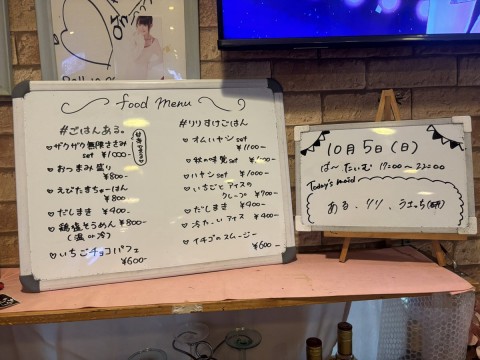 food Menu
#ごはんある。
♡ ザクザク無限ささみ
set ¥1000-
♡ おつまみ盛り
¥800-
♡ えびたまちゃーはん
¥800-
♡ だしまき ¥400-
♡ 鶏塩そうめん ¥800-
(温 or 冷)
♡ いちごチョコパフェ
¥600-
#りりすけごはん
♡ オムハヤシ set
¥1100-
♡ 秋の味覚 set
♡ ハヤシ set ¥1000-
♡ いちごとアイスの
クレープ ¥700-
♡ だしまき ¥400-
♡ 冷たいアイス ¥400-
♡ イチゴのスムージー
¥600-
10月5日(日)
ば〜たいむ 17:00〜23:00
Today's maid
ある、リリ、うまっち